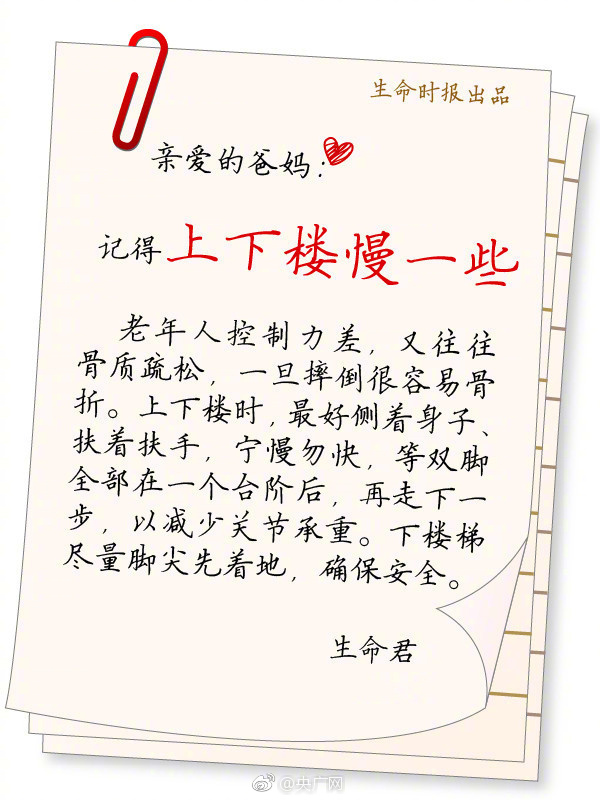 生命时报出品
亲爱的爸妈：
记得上下楼慢一些
老年人控制力差，又往往
骨质疏松，一旦摔倒很容易骨
折。上下楼时，最好侧着身子、
扶着扶手，宁慢勿快，等双脚
全部在一个台阶后，再走下一
步，以减少关节承重。下楼梯
尽量脚尖先着地，确保安全。
生命君
@央广网